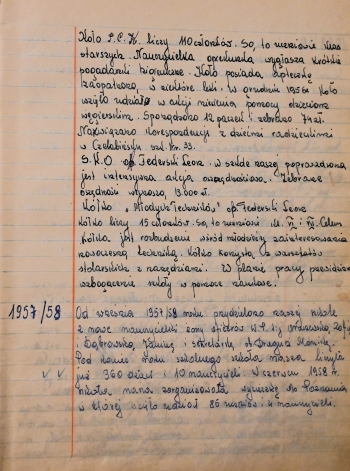 Koło P.C.K. liczy 110 członków. Są to uczniowie klas
starszych. Nauczycielka opiekunka wygłasza krótkie
pogadanki higieniczne. Koło posiada apteczkę
zaopatrzoną w niektóre leki. W grudniu 1956 r. Koło
wzięło udział w akcji niesienia pomocy dzieciom
węgierskim. Sporządzono 12 paczek i zebrano 74 zł.
Nawiązano korespondencję z dziećmi radzieckimi
w Czelabińsku szk. Nr. 33.
S.K.O. op. Federski Leon. W szkole naszej poprowadzona
jest intensywna akcja oszczędnościowa. Zebrane
oszczędności wynoszą 13.000 zł.
Kółko "Młodych Techników" op. Federski Leon
Kółko liczy 15 członków. Są to uczniowie kl. VI i VII. Celem
kółka jest rozbudzenie wśród młodzieży zainteresowania
nowoczesną techniką. Kółko korzysta z warsztatów
stolarskich z narzędziami. W planie pracy przewidziane
wzbogacenie szkoły w pomoce naukowe.
1957/58
Od września 1957/58 roku przydzielono naszej szkole
2 nowe nauczycielki żony oficerów W.P. t.j.
Dąbrowską Halinę i
Pod koniec roku szkolnego szkoła nasza liczyła
już 360 dzieci i 10 nauczycieli. W czerwcu 1958 r.
szkoła nasza zorganizowała wycieczkę do Poznania
w której wzięło udział 86 uczniów i 4 nauczycieli.